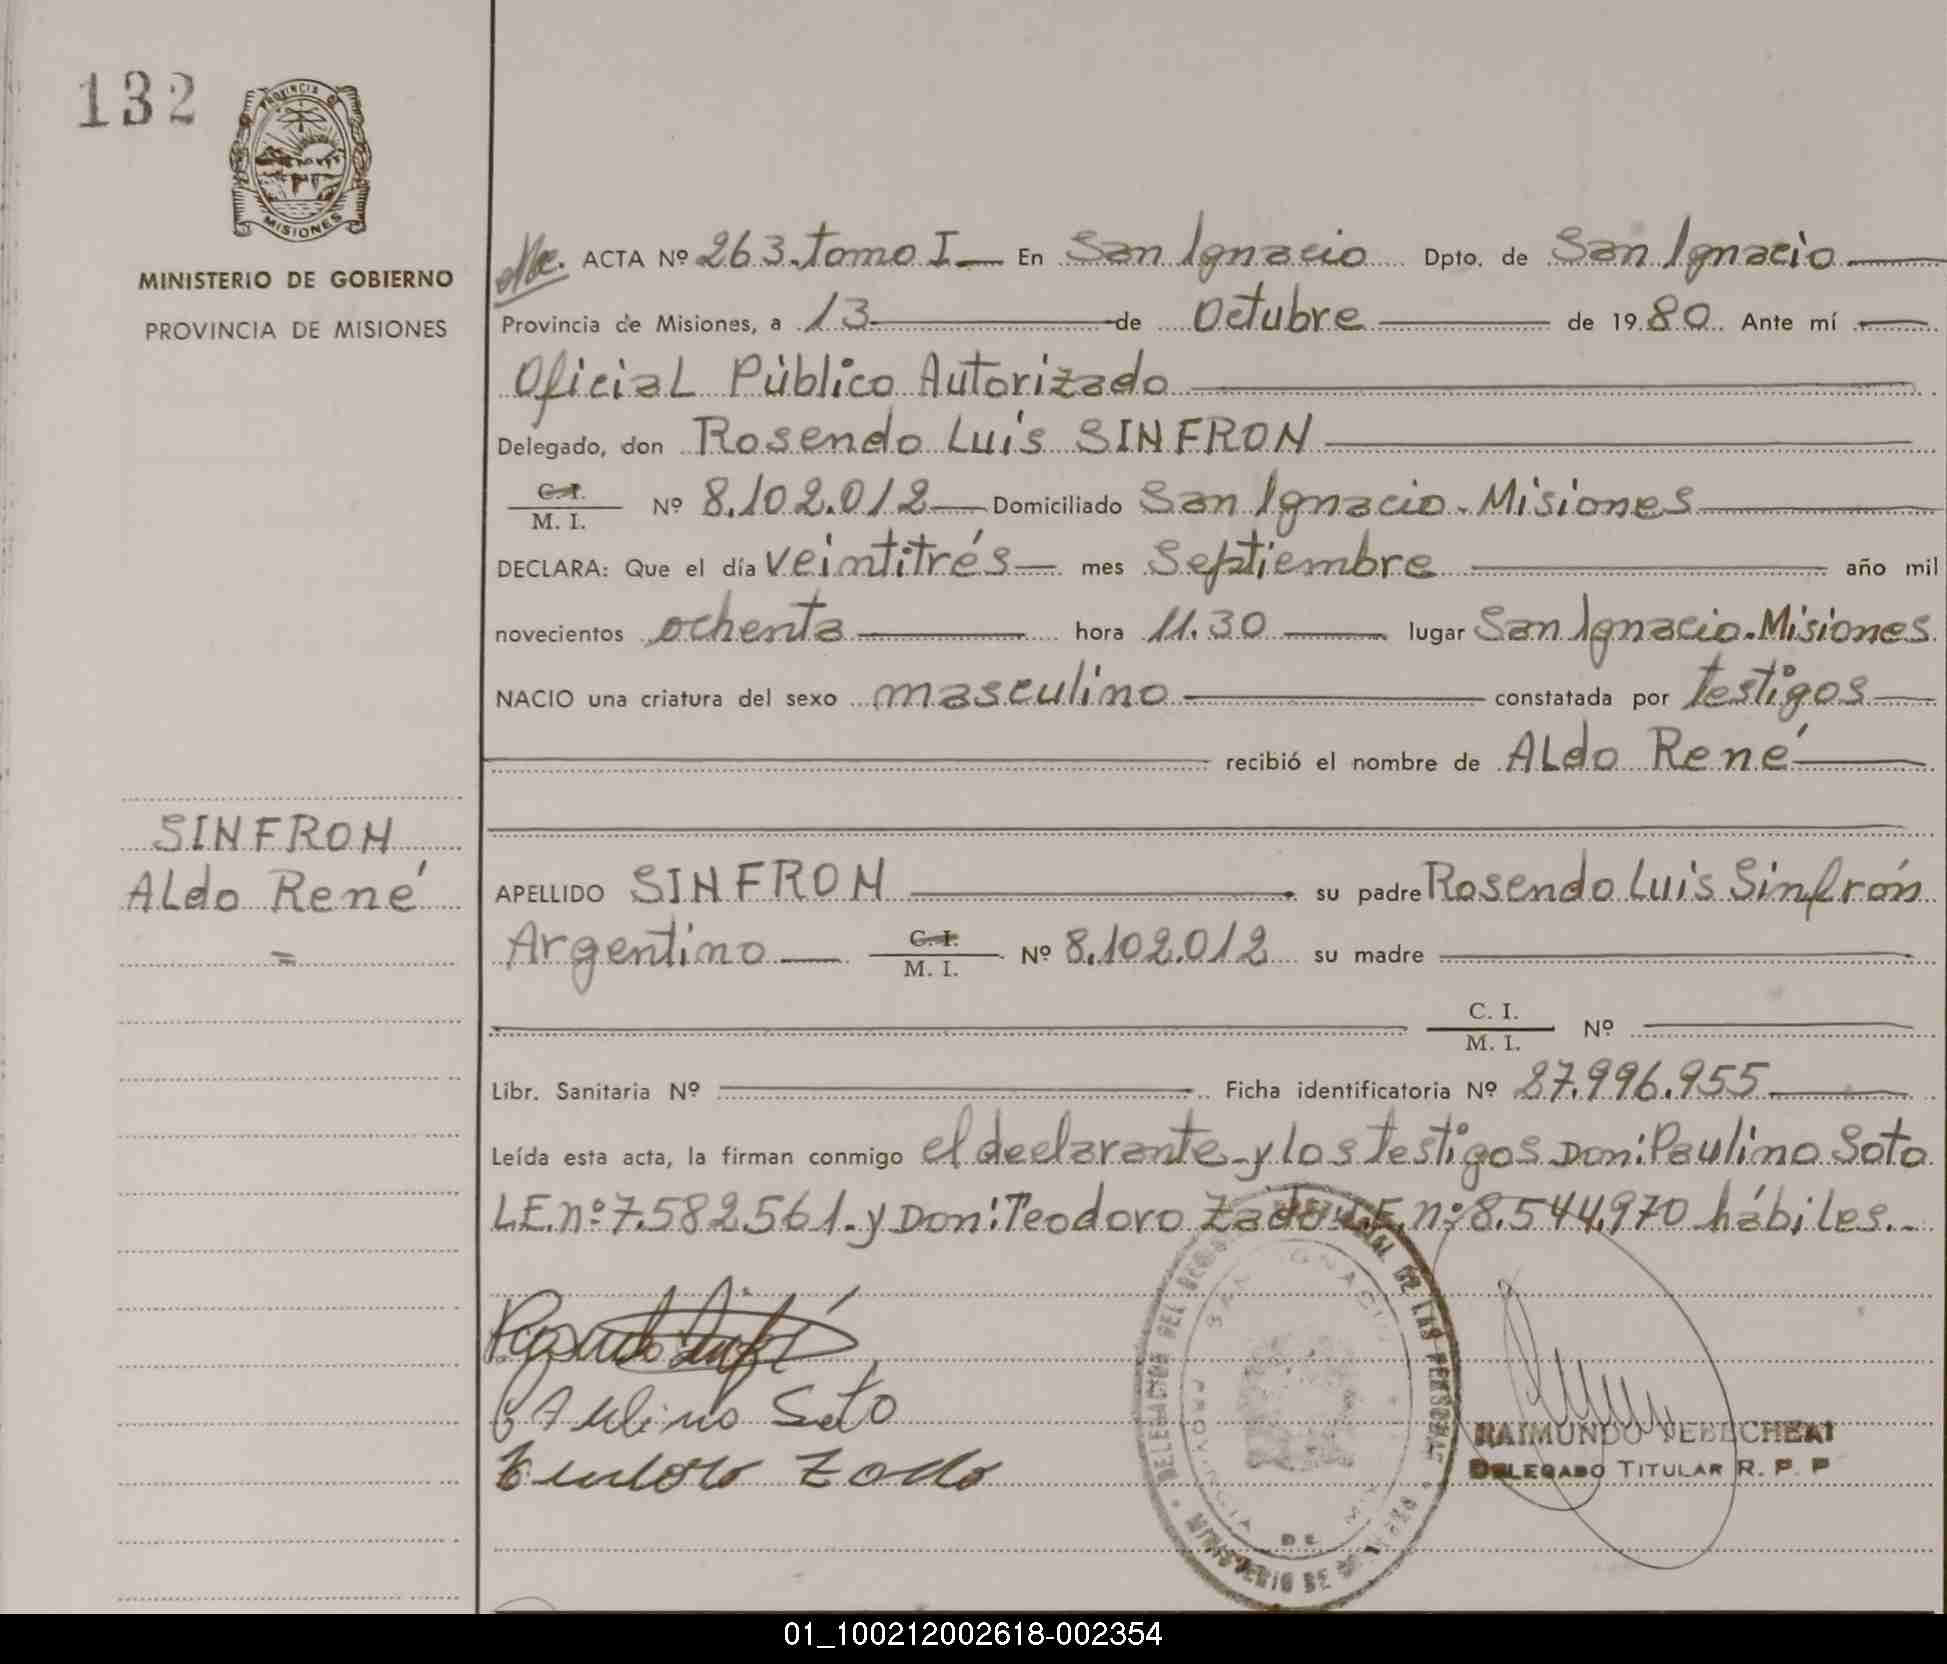 132
PROVINCIA DE
MISIONES
MINISTERIO DE GOBIERNO
PROVINCIA DE MISIONES
ACTA Nº 263. tomo I. En San Ignacio Dpto. de San Ignacio
Provincia de Misiones, a 13 de Octubre de 1980. Ante mí
Oficial Público Autorizado
Delegado, don Rosendo Luis SINFRON
C. I.
M. I. Nº 8.102.012 Domiciliado San Ignacio. Misiones
DECLARA: Que el día veintitrés mes Septiembre año mil
novecientos ochenta hora 11.30 lugar San Ignacio. Misiones
NACIO una criatura del sexo masculino constatada por testigos
recibió el nombre de Aldo René
SINFRON
Aldo René
=
APELLIDO SINFRON su padre Rosendo Luis Sinfrón
Argentino C. I.
M. I. Nº 8.102.012 su madre
C. I.
M. I. Nº
Libr. Sanitaria Nº Ficha identificatoria Nº 27.996.955
Leída esta acta, la firman conmigo el declarante y los testigos Don: Paulino Soto
L.E. nº 7.582.561. y Don: Teodoro Zado L.E. nº 8.544.970 hábiles.
Paulino Soto
Teodoro Zado
DELEGACION DEL DE LAS PERSONAS
SAN IGNACIO
PROVINCIA DE
MINISTERIO DE
RAIMUNDO
DELEGADO TITULAR R. P. P
01_100212002618-002354